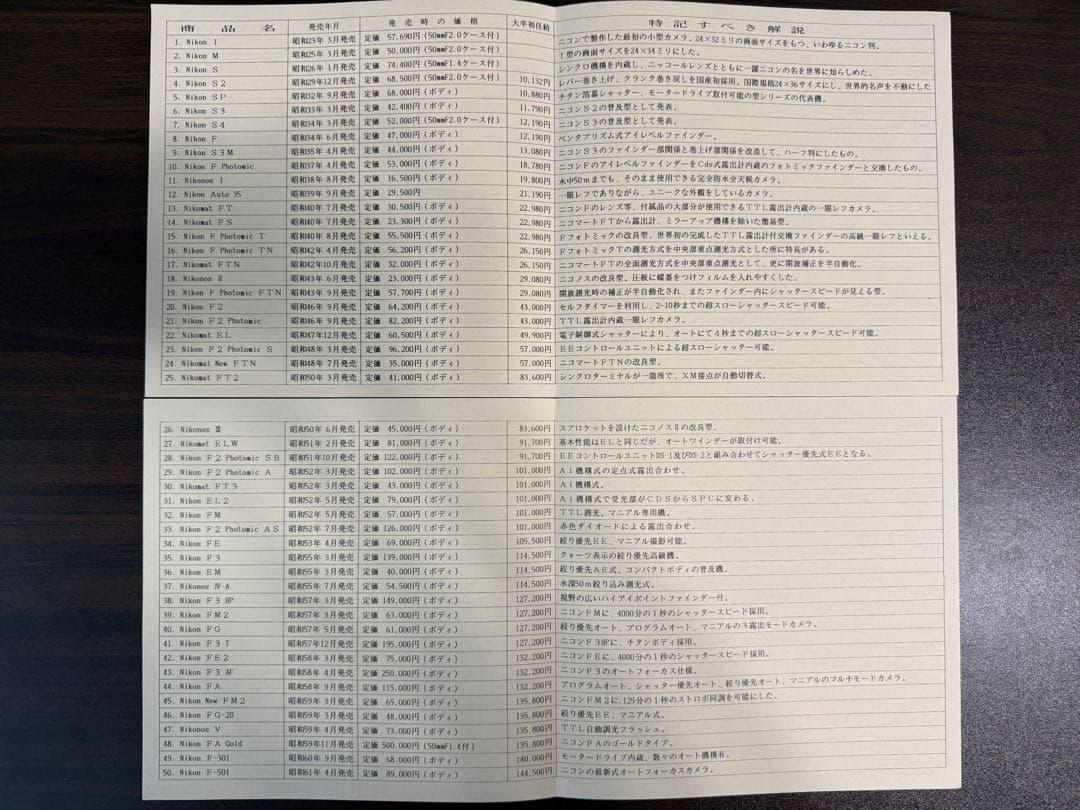 商品名 発売年月 発売時の価格 大卒初任給 特記すべき解説
1. Nikon I 昭和23年 3月発売 定価 57,690円(50mmF2.0ケース付) ニコンで製作した最初の小型カメラ。24×32ミリの画面サイズをもつ、いわゆるニコン判。
2. Nikon M 昭和25年 3月発売 定価 50,000円(50mmF2.0ケース付) I型の画面サイズを24×34ミリにした。
3. Nikon S 昭和26年 1月発売 定価 74,400円(50mmF1.4ケース付) シンクロ機構を内蔵し、ニッコールレンズとともに一躍ニコンの名を世界に知らしめた。
4. Nikon S2 昭和29年12月発売 定価 68,500円(50mmF2.0ケース付) 10,132円 レバー巻き上げ、クランク巻き戻しを国産初採用。国際規格24×36サイズにし、世界的名声を不動にした
5. Nikon SP 昭和32年 9月発売 定価 68,000円(ボディ) 10,880円 チタン箔幕シャッター、モータードライブ取付可能の型シリーズの代表機。
6. Nikon S3 昭和33年 3月発売 定価 42,400円(ボディ) 11,790円 ニコンS2の普及型として発表。
7. Nikon S4 昭和34年 3月発売 定価 52,000円(50mmF2.0ケース付) 12,190円 ニコンS3の普及型として発表。
8. Nikon F 昭和34年 6月発売 定価 47,000円(ボディ) 12,190円 ペンタプリズム式アイレベルファインダー。
9. Nikon S3M 昭和35年 4月発売 定価 44,000円(ボディ) 13,080円 ニコンS3のファインダー部関係と巻上げ部関係を改造して、ハーフ判にしたもの。
10. Nikon F Photomic 昭和37年 4月発売 定価 53,000円(ボディ) 18,780円 ニコンFのアイレベルファインダーをCds式露出計内蔵のフォトミックファインダーと交換したもの。
11. Nikonos I 昭和38年 8月発売 定価 16,500円(ボディ) 19,800円 水中50mまでも、そのまま使用できる完全防水全天候カメラ。
12. Nikon Auto 35 昭和39年 9月発売 定価 29,500円 21,190円 一眼レフでありながら、ユニークな外観をしているカメラ。
13. Nikomat FT 昭和40年 7月発売 定価 30,500円(ボディ) 22,980円 ニコンFのレンズ等、付属品の大部分が使用できるTTL露出計内蔵の一眼レフカメラ。
14. Nikomat FS 昭和40年 7月発売 定価 23,300円(ボディ) 22,980円 ニコマートFTから露出計、ミラーアップ機構を除いた簡易型。
15. Nikon F Photomic T 昭和40年 8月発売 定価 55,500円(ボディ) 22,980円 Fフォトミックの改良型。世界初の完成したTTL露出計付交換ファインダーの高級一眼レフといえる。
16. Nikon F Photomic TN 昭和42年 4月発売 定価 56,200円(ボディ) 26,150円 FフォトミックTの測光方式を中央部重点測光方式とした所に特長がある。
17. Nikomat FTN 昭和42年10月発売 定価 32,000円(ボディ) 26,150円 ニコマートFTの全面測光方式を中央部重点測光として、更に開放補正を半自動化。
18. Nikonos II 昭和43年 6月発売 定価 23,000円(ボディ) 29,080円 ニコノスの改良型。圧板に蝶番をつけフィルムを入れやすくした。
19. Nikon F Photomic FTN 昭和43年 9月発売 定価 57,700円(ボディ) 29,080円 開放測光時の補正が半自動化され、またファインダー内にシャッタースピードが見える型。
20. Nikon F2 昭和46年 9月発売 定価 64,200円(ボディ) 43,000円 セルフタイマーを利用し、2-10秒までの超スローシャッタースピード可能。
21. Nikon F2 Photomic 昭和46年 9月発売 定価 82,200円(ボディ) 43,000円 TTL露出計内蔵一眼レフカメラ。
22. Nikomat EL 昭和47年12月発売 定価 60,500円(ボディ) 49,900円 電子制御式シャッターにより、オートにて4秒までの超スローシャッタースピード可能。
23. Nikon F2 Photomic S 昭和48年 3月発売 定価 96,200円(ボディ) 57,000円 EEコントロールユニットによる超スローシャッター可能。
24. Nikomat New FTN 昭和48年 7月発売 定価 35,000円(ボディ) 57,000円 ニコマートFTNの改良型。
25. Nikomat FT2 昭和50年 3月発売 定価 41,000円(ボディ) 83,600円 シンクロターミナルが一箇所で、XM接点が自動切替式。
26. Nikonos III 昭和50年 6月発売 定価 45,000円(ボディ) 83,600円 スプロケットを設けたニコノスIIの改良型。
27. Nikomat ELW 昭和51年 2月発売 定価 81,000円(ボディ) 91,700円 基本性能はELと同じだが、オートワインダーが取付け可能。
28. Nikon F2 Photomic SB 昭和51年10月発売 定価 122,000円(ボディ) 91,700円 EEコントロールユニットDS-1及びDS-2と組み合わせてシャッター優先式EEとなる。
29. Nikon F2 Photomic A 昭和52年 3月発売 定価 102,000円(ボディ) 101,000円 Ai機構式の定点式露出合わせ。
30. Nikomat FT3 昭和52年 3月発売 定価 43,000円(ボディ) 101,000円 Ai機構式。
31. Nikon EL2 昭和52年 5月発売 定価 79,000円(ボディ) 101,000円 Ai機構式で受光部がCDSからSPCに変わる。
32. Nikon FM 昭和52年 5月発売 定価 57,000円(ボディ) 101,000円 TTL測光。マニアル専用機。
33. Nikon F2 Photomic AS 昭和52年 7月発売 定価 126,000円(ボディ) 101,000円 赤色ダイオードによる露出合わせ。
34. Nikon FE 昭和53年 4月発売 定価 69,000円(ボディ) 105,500円 絞り優先EE、マニアル撮影可能。
35. Nikon F3 昭和55年 3月発売 定価 139,000円(ボディ) 114,500円 クォーツ表示の絞り優先高級機。
36. Nikon EM 昭和55年 3月発売 定価 40,000円(ボディ) 114,500円 絞り優先AE式。コンパクトボディの普及機。
37. Nikonos IV-A 昭和55年 7月発売 定価 54,500円(ボディ) 114,500円 水深50m絞り込み測光式。
38. Nikon F3 HP 昭和57年 3月発売 定価 149,000円(ボディ) 127,200円 視野の広いハイアイポイントファインダー付。
39. Nikon FM2 昭和57年 3月発売 定価 63,000円(ボディ) 127,200円 ニコンFMに、4000分の1秒のシャッタースピード採用。
40. Nikon FG 昭和57年 5月発売 定価 61,000円(ボディ) 127,200円 絞り優先オート、プログラムオート、マニアルの3露出モードカメラ。
41. Nikon F3 T 昭和57年12月発売 定価 195,000円(ボディ) 127,200円 ニコンF3HPに、チタンボディ採用。
42. Nikon FE2 昭和58年 3月発売 定価 75,000円(ボディ) 132,200円 ニコンFEに、4000分の1秒のシャッタースピード採用。
43. Nikon F3 AF 昭和58年 4月発売 定価 250,000円(ボディ) 132,200円 ニコンF3のオートフォーカス仕様。
44. Nikon FA 昭和58年 9月発売 定価 115,000円(ボディ) 132,200円 プログラムオート、シャッター優先オート、絞り優先オート、マニアルのマルチモードカメラ。
45. Nikon New FM2 昭和59年 3月発売 定価 65,000円(ボディ) 135,800円 ニコンFM2に,125分の1秒のストロボ同調を可能にした。
46. Nikon FG-20 昭和59年 3月発売 定価 48,000円(ボディ) 135,800円 絞り優先EE、マニアル式。
47. Nikonos V 昭和59年 4月発売 定価 73,000円(ボディ) 135,800円 TTL自動調光フラッシュ。
48. Nikon FA Gold 昭和59年11月発売 定価 500,000円(50mmF1.4付) 135,800円 ニコンFAのゴールドタイプ。
49. Nikon F-301 昭和60年 9月発売 定価 68,000円(ボディ) 140,000円 モータードライブ内蔵、数々のオート機構有。
50. Nikon F-501 昭和61年 4月発売 定価 89,000円(ボディ) 144,500円 ニコンの最新式オートフォーカスカメラ。